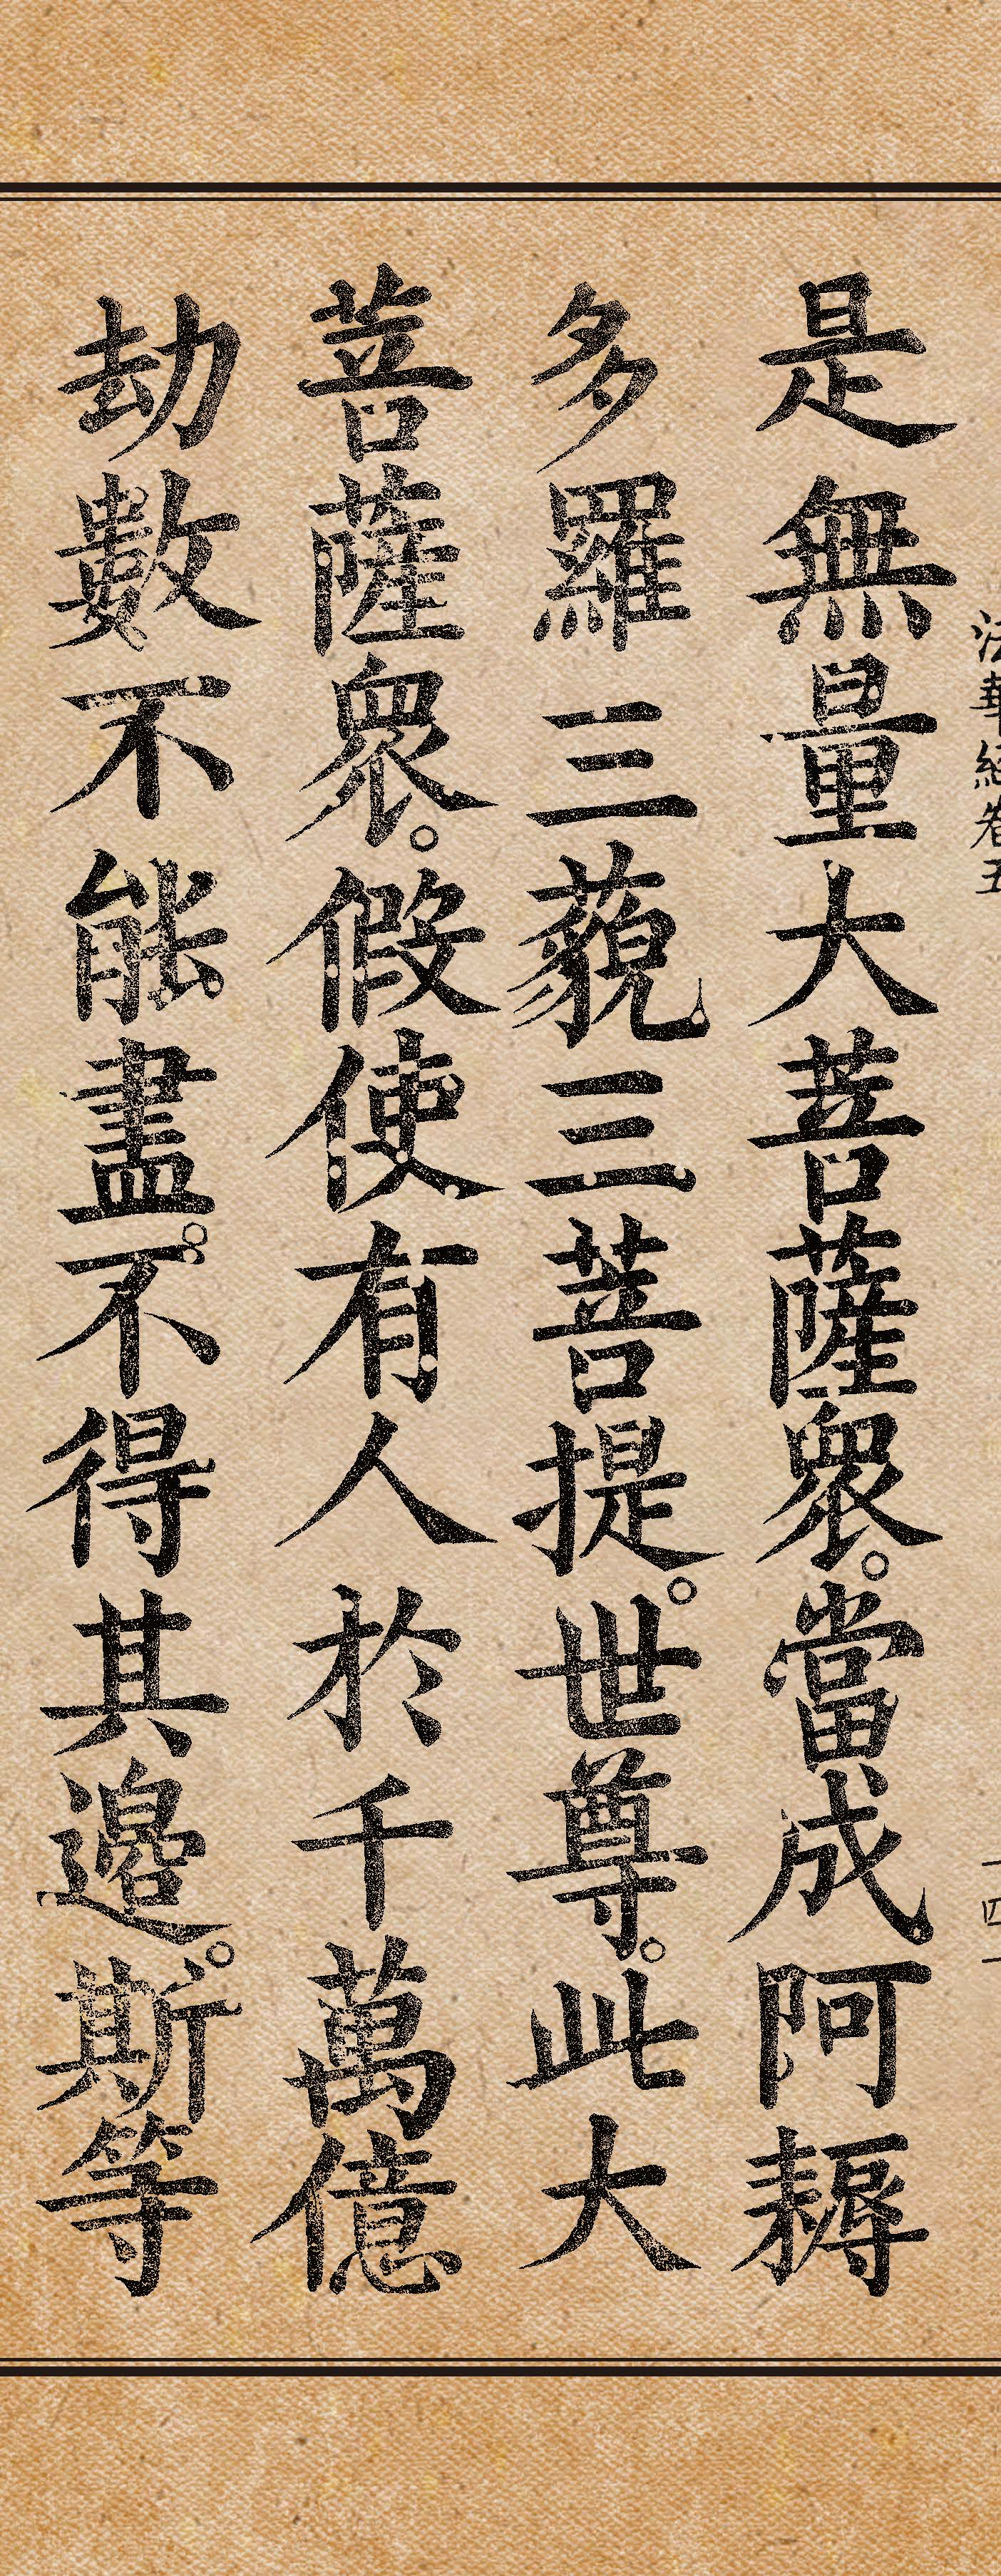 法華經卷五
一四一
是無量大菩薩衆。當成阿耨
多羅三藐三菩提。世尊。此大
菩薩衆。假使有人於千萬億
劫數不能盡。不得其邊。斯等